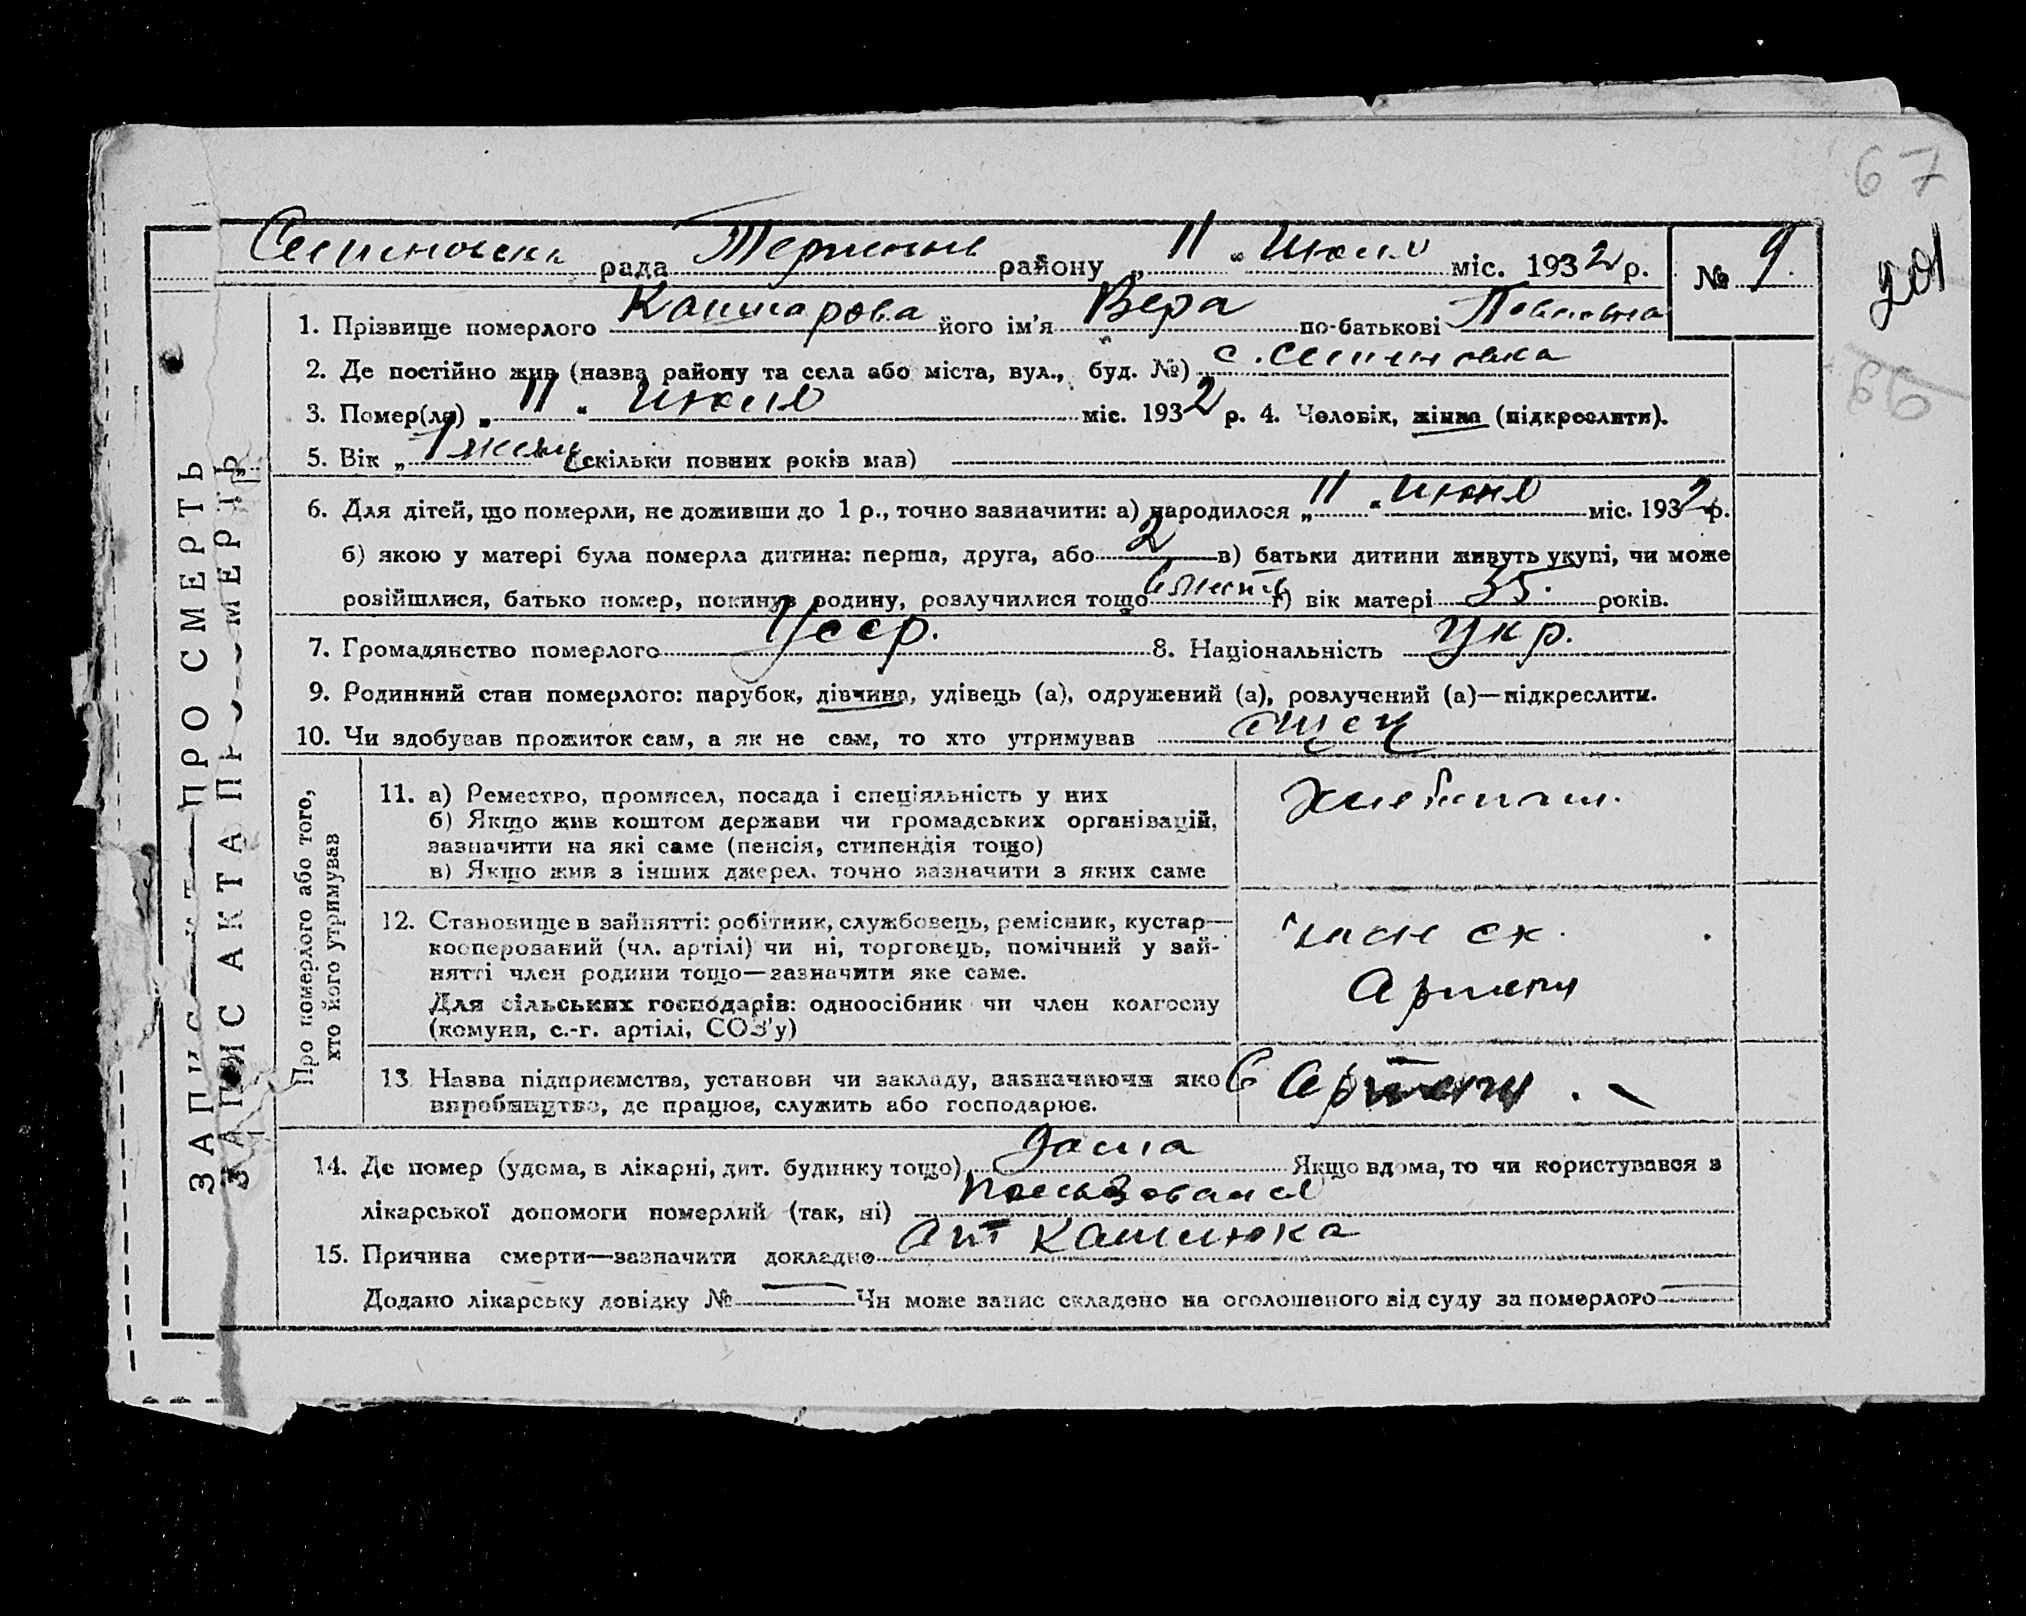 67
рада района „ 11 “ Июля міс. 1932 р. № 9.
201
1. Прізвище померлого його ім'я Вера по-батькові Павловна
2. Де постійно жив (назва району та села або міста, вул., буд. №)
3. Помер(ла) „ 11 “ Июля міс. 1932 р. 4. Чоловік, жінка (підкреслити).
5. Вік „ 1 месяц “ (скільки повних років мав)
6. Для дітей, що померли, не доживши до 1 р., точно зазначити: а) народилося „ 11 “ Июня міс. 1932 р.
б) якою у матері була померла дитина: перша, друга, або 2 в) батьки дитини живуть укупі, чи може
розійшлися, батько помер, покинув родину, розлучилися тощо г) вік матері 35. років.
7. Громадянство померлого Усср. 8. Національність Укр.
9. Родинний стан померлого: парубок, дівчина, удівець (а), одружений (а), розлучений (а)—підкреслити.
10. Чи здобував прожиток сам, а як не сам, то хто утримував отец
ЗАПИС АКТА ПРО СМЕРТЬ
Про померлого або того,
хто його утримував
11. а) Ремество, промисел, посада і спеціяльність у них
б) Якщо жив коштом держави чи громадських організацій,
зазначити на які саме (пенсія, стипендія тощо)
в) Якщо жив з інших джерел, точно зазначити з яких саме
хлебопаш.
12. Становище в зайнятті: робітник, службовець, ремісник, кустар—
кооперований (чл. артілі) чи ні, торговець, помічний у зай-
нятті член родини тощо—зазначити яке саме.
Для сільських господарів: одноосібник чи член колгоспу
(комуни, с.-г. артілі, СОЗ'у)
член ск.
Артели
13 Назва підприємства, установи чи закладу, зазначаючи яко
виробництво, де працює, служить або господарює.
в Артели.
14. Де помер (удома, в лікарні, дит. будинку тощо) дома Якщо вдома, то чи користувався з
лікарської допомоги померлий (так, ні) пользовался
15. Причина смерти—зазначити докладно От Кашлюка
Додано лікарську довідку № — Чи може запис складено на оголошеного від суду за померлого —